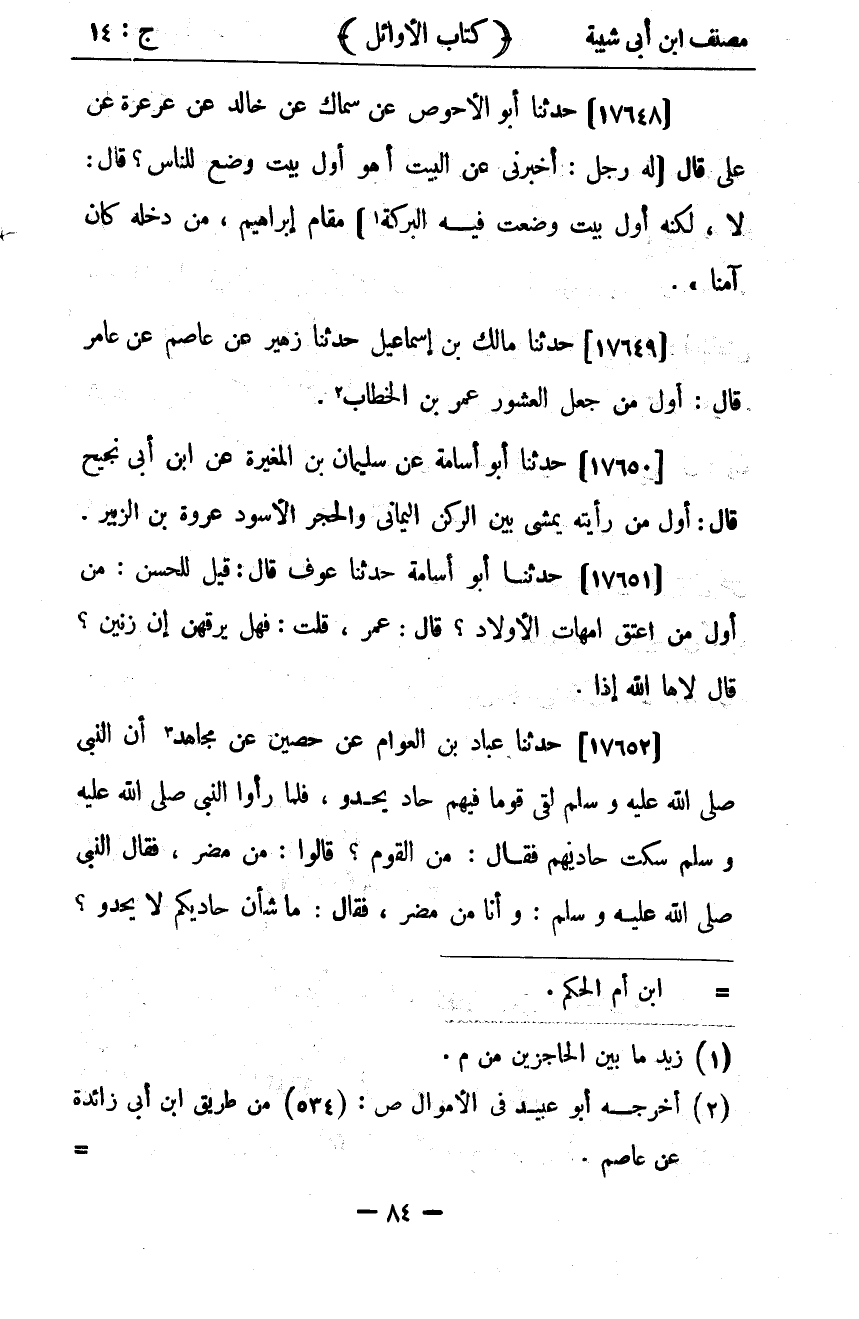 مصنف ابن أبى شيبة ﴿ كتاب الأوائل ﴾ ج : ١٤
[١٧٦٤٨] حدثنا أبو الأحوص عن سماك عن خالد عن عرعرة عن
على قال [له رجل : أخبرنى عن البيت أ هو أول بيت وضع للناس ؟ قال :
لا ، لكنه أول بيت وضعت فيه البركة١ ] مقام إبراهيم ، من دخله كان
آمنا ، .
[١٧٦٤٩] حدثنا مالك بن إسماعيل حدثنا زهير عن عاصم عن عامر
قال : أول من جعل العشور عمر بن الخطاب٢ .
[١٧٦٥٠] حدثنا أبو أسامة عن سليمان بن المغيرة عن ابن أبى نجيح
قال : أول من رأيته يمشى بين الركن اليمانى والحجر الأسود عروة بن الزبير .
[١٧٦٥١] حدثنا أبو أسامة حدثنا عوف قال : قيل للحسن : من
أول من اعتق امهات الأولاد ؟ قال : عمر ، قلت : فهل يرقهن إن زنين ؟
قال لاها الله إذا .
[١٧٦٥٢] حدثنا عباد بن العوام عن حصين عن مجاهد٣ أن النبى
صلى الله عليه و سلم لقى قوما فيهم حاد يحدو ، فلما رأوا النبى صلى الله عليه
و سلم سكت حاديهم فقال : من القوم ؟ قالوا : من مضر ، فقال النبى
صلى الله عليه و سلم : و أنا من مضر ، فقال : ما شأن حاديكم لا يحدو ؟
= ابن أم الحكم .
(١) زيد ما بين الحاجزين من م .
(٢) أخرجه أبو عبيد فى الأموال ص : (٥٣٤) من طريق ابن أبى زائدة
عن عاصم . =
— ٨٤ —